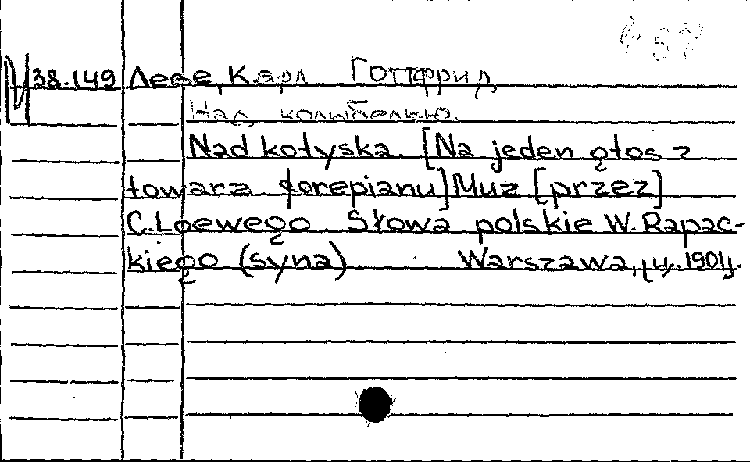 38.149 Леве, Карл Готтфрид
Над колыбелью.
Nad kołyską. [Na jeden głos z
towarz. forepianu] Muz [przez]
C. Loewego Słowa polskie W. Rapac-
kiego (syna) Warszawa, 1904.